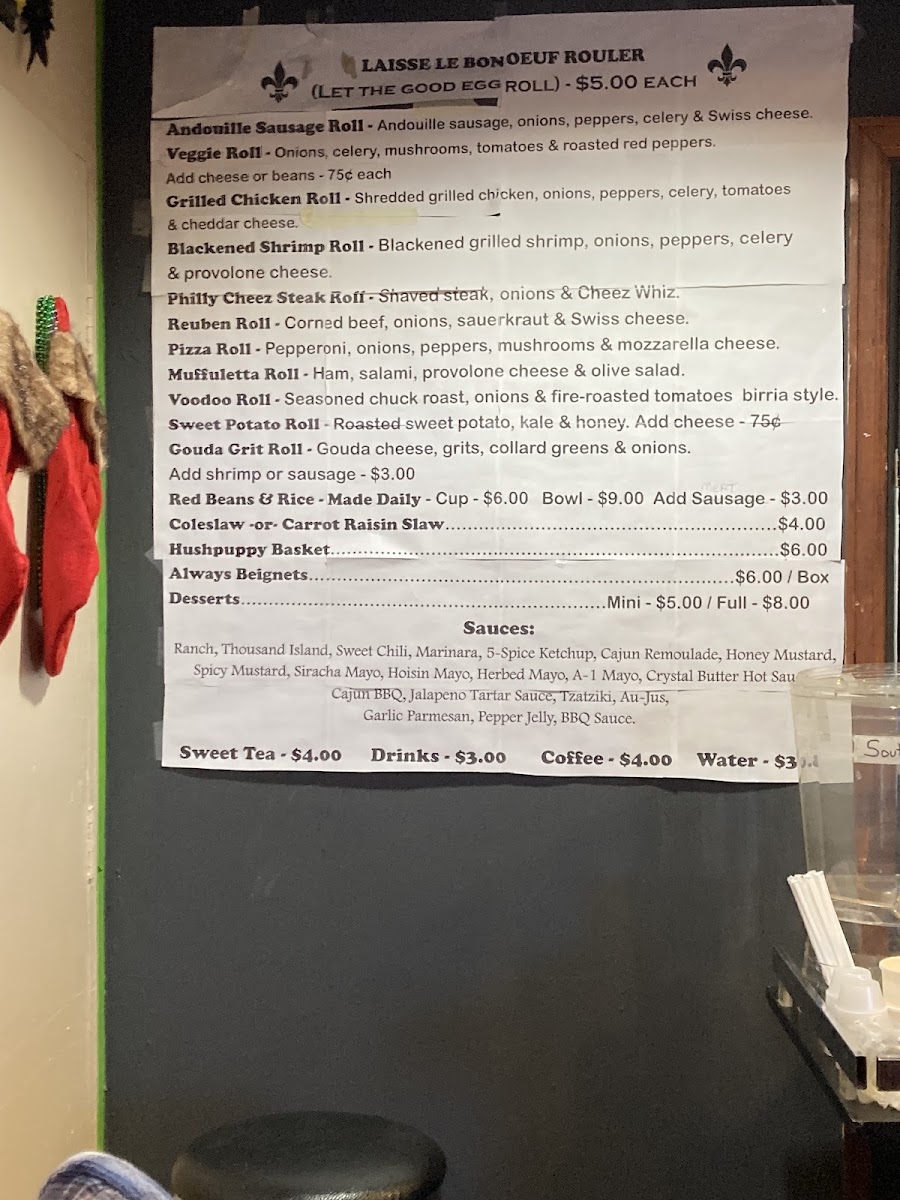 LAISSE LE BON OEUF ROULER
(LET THE GOOD EGG ROLL) - $5.00 EACH
Andouille Sausage Roll - Andouille sausage, onions, peppers, celery & Swiss cheese.
Veggie Roll - Onions, celery, mushrooms, tomatoes & roasted red peppers.
Add cheese or beans - 75¢ each
Grilled Chicken Roll - Shredded grilled chicken, onions, peppers, celery, tomatoes
& cheddar cheese.
Blackened Shrimp Roll - Blackened grilled shrimp, onions, peppers, celery
& provolone cheese.
Philly Cheez Steak Roll - Shaved steak, onions & Cheez Whiz.
Reuben Roll - Corned beef, onions, sauerkraut & Swiss cheese.
Pizza Roll - Pepperoni, onions, peppers, mushrooms & mozzarella cheese.
Muffuletta Roll - Ham, salami, provolone cheese & olive salad.
Voodoo Roll - Seasoned chuck roast, onions & fire-roasted tomatoes birria style.
Sweet Potato Roll - Roasted sweet potato, kale & honey. Add cheese - 75¢
Gouda Grit Roll - Gouda cheese, grits, collard greens & onions.
Add shrimp or sausage - $3.00
Red Beans & Rice - Made Daily - Cup - $6.00 Bowl - $9.00 Add Sausage - $3.00
Coleslaw -or- Carrot Raisin Slaw...$4.00
Hushpuppy Basket...$6.00
Always Beignets...$6.00 / Box
Desserts...Mini - $5.00 / Full - $8.00
Sauces:
Ranch, Thousand Island, Sweet Chili, Marinara, 5-Spice Ketchup, Cajun Remoulade, Honey Mustard,
Spicy Mustard, Siracha Mayo, Hoisin Mayo, Herbed Mayo, A-1 Mayo, Crystal Butter Hot Sau
Cajun BBQ, Jalapeno Tartar Sauce, Tzatziki, Au-Jus,
Garlic Parmesan, Pepper Jelly, BBQ Sauce.
Sweet Tea - $4.00 Drinks - $3.00 Coffee - $4.00 Water - $3
Sout